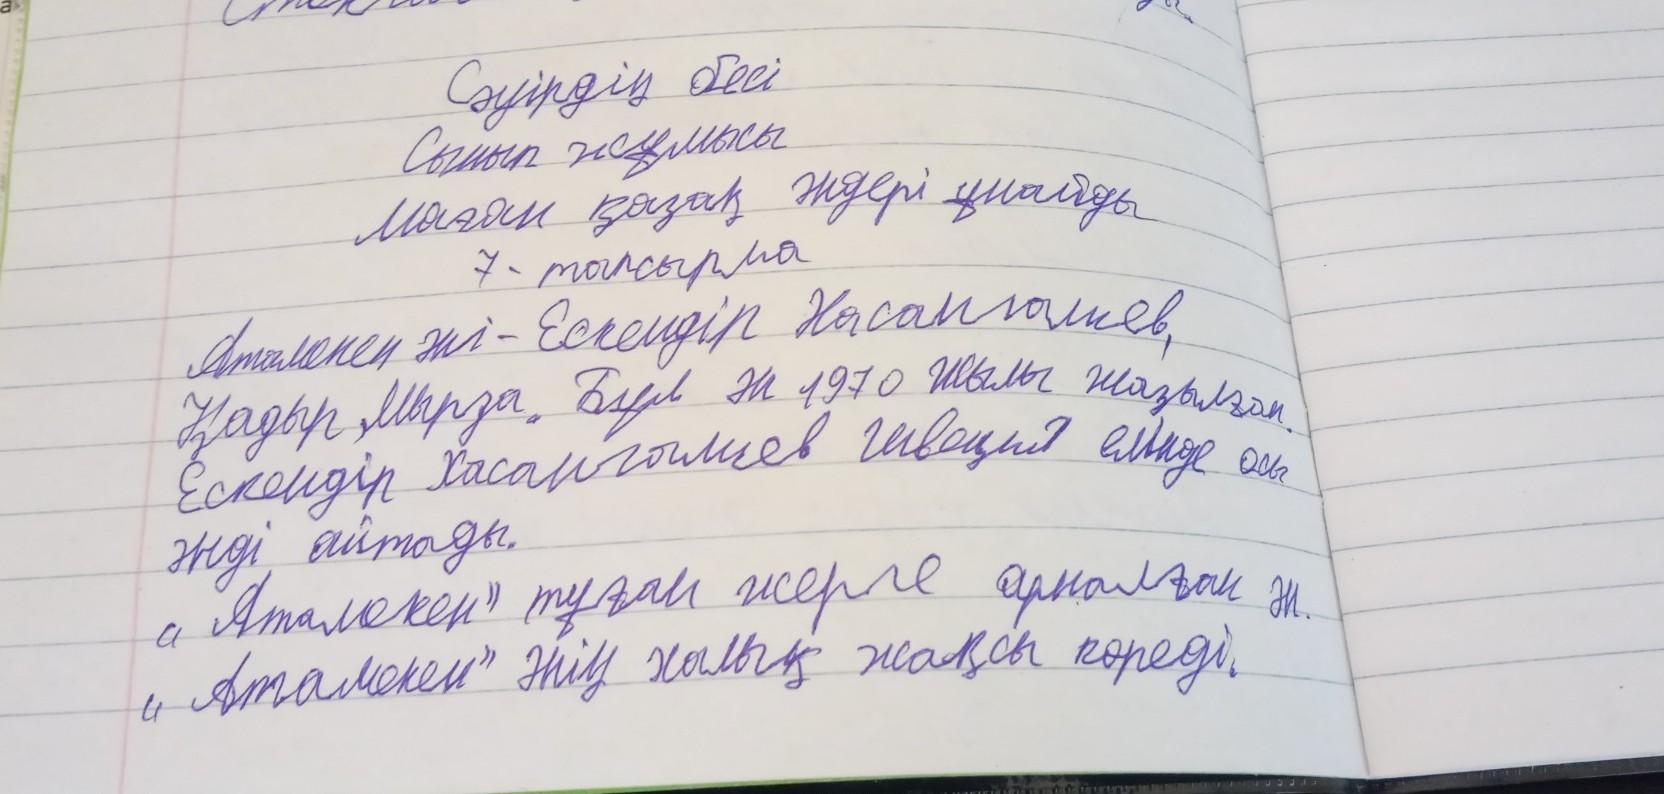 Сәуірдің бесі
Сынып жұмысы
Маған қазақ әндері ұнайды
7- тапсырма
Атамекен әні - Ескендір Хасангалиев,
Қадыр Мырза. Бұл ән 1970 жылы жазылған.
Ескендір Хасангалиев Швеция елінде осы
әнді айтады.
„Атамекен" туған жерге арналған ән.
„Атамекен" әнін халық жақсы көреді.